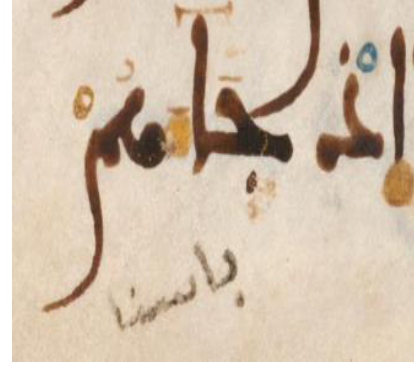 اذ جاءهم
باسنا